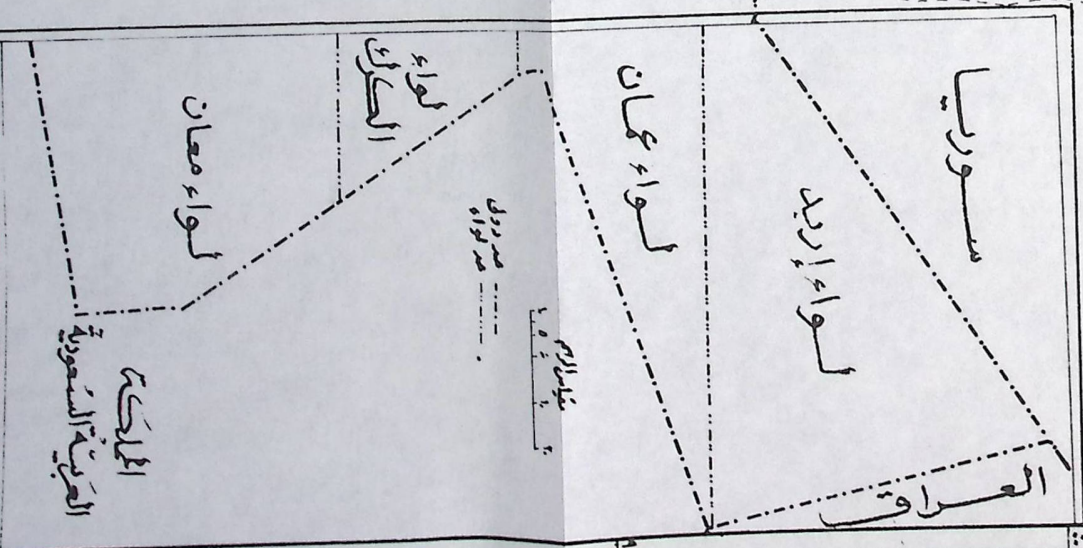 سوريا
العراق
لواء إربد
لواء عمان
لواء
الكرك
لواء معان
حد دولي
حد لواء
مقياس الرسم
المملكة
العربية السعودية